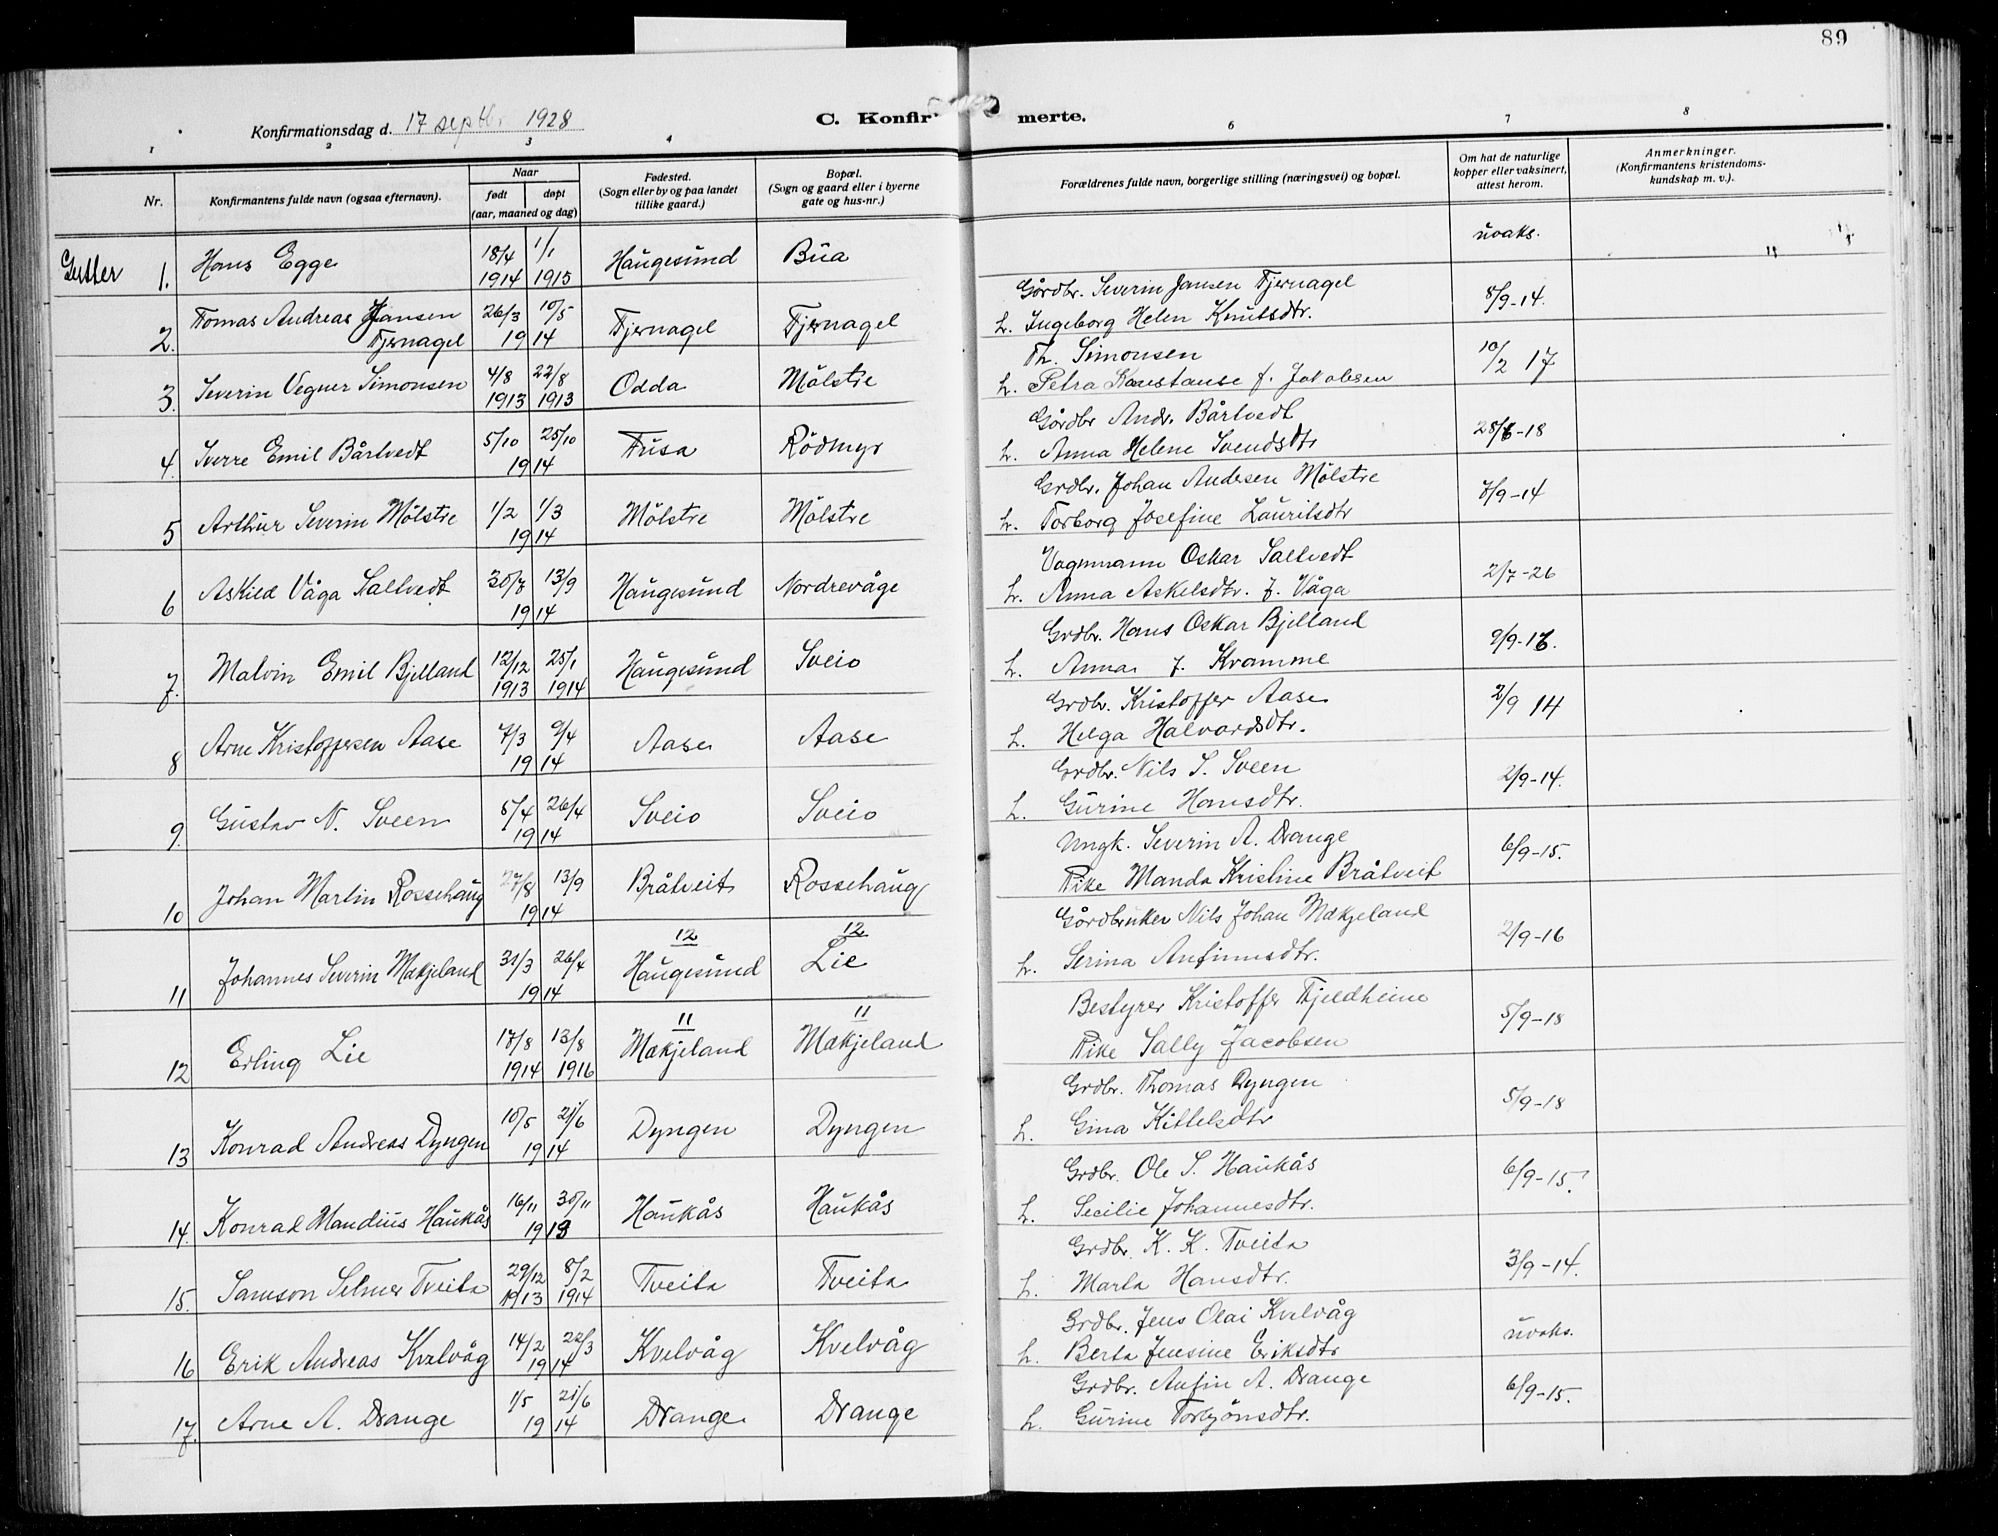 89
Konfirmationsdag d. 17 septbr. 1928
C. Konfir merte.
1 2 3 4 6 7 8
Nr.
Konfirmantens fulde navn (ogsaa efternavn).
Naar
født døpt
(aar, maaned og dag)
Fødested.
(Sogn eller by og paa landet
tillike gaard.)
Bopæl.
(Sogn og gaard eller i byerne
gate og hus-nr.)
Forældrenes fulde navn, borgerlige stilling (næringsvei) og bopæl.
Om hat de naturlige
kopper eller vaksinert,
attest herom.
Anmerkninger.
(Konfirmantens kristendoms-
kundskap m. v.).
Gutter 1. Hans Egge 18/4 1914 1/1 1915 Haugesund Bua uvaks.
2. Tomas Andreas Jansen Tjernagel 26/3 10/5 1914 Tjernagel Tjernagel
Gårdbr. Severin Jansen Tjernagel
h. Ingeborg Helen Knutsdtr. 8/9-14.
3. Severin Vegner Simonsen 4/8 1913 22/8 1913 Odda Mölstre
Th. Simonsen
h. Petra Konstanse f. Jakobsen 10/2 17
4. Sverre Emil Bårtvedt 5/10 25/10 1914 Fusa Rödmyr
Gårdbr Andr. Bårtvedt
h. Anna Helene Svendsdtr 28/6-18
5 Arthur Severin Mölstre 1/2 1/3 1914 Mölstre Mölstre
Grdbr. Johan Andersen Mölstre
h. Torborg Josefine Lauritsdtr 7/9-14
6 Askild Våga Saltvedt 30/7 13/9 1914 Haugesund Nordrevåge
Vognmann Oskar Saltvedt
h. Anna Askelsdtr. f. Våga 2/7-26
7. Malvin Emil Bjelland 12/12 1913 25/1 1914 Haugesund Sveio
Grdbr. Hans Oskar Bjelland
h. Anna f. Kramme 9/9-16.
8 Arne Kristoffersen Aase 7/3 9/4 1914 Aase Aase
Grdbr. Kristoffer Aase
h. Helga Halvardsdtr. 2/9 14
9. Gustav N. Sveen 5/4 26/4 1914 Sveio Sveio
Grdbr. Nils S. Sveen
h. Gurine Hansdtr. 2/9-14.
10 Johan Martin Rossehaug 27/8 13/9 1914 Bråtveit Rossehaug
Ungk. Severin A. Drange
Pike Manda Kristine Bråtveit 6/9-15.
11 Johannes Severin Mækjeland 31/3 26/4 1914 12 Haugesund 12 Lie
Gårdbruker Nils Johan Mækjeland
h. Serina Anfinnsdtr. 2/9-16
12 Erling Lie 17/8 1914 13/8 1916 11 Mækjeland 11 Mækjeland
Bestyrer Kristoffer Fjeldheim
Pike Sally Jacobsen 5/9-18
13 Konrad Andreas Dyngen 10/5 21/6 1914 Dyngen Dyngen
Grdbr. Thomas Dyngen
h. Gina Kittelsdtr 5/9-18
14. Konrad Mandius Haukås 16/11 30/11 1913 Haukås Haukås
Grdbr. Ole S. Haukås
h. Secilie Johannesdtr. 6/9-15.
15. Samson Selmer Tveita 29/12 1913 8/2 1914 Tveita Tveita
Grdbr. K. K. Tveita
h. Marta Hansdtr. 3/9-14.
16 Erik Andreas Kvelvåg 14/2 22/3 1914 Kvelvåg Kvelvåg
Grdbr. Jens Olai Kvelvåg
h. Berta Jensine Eriksdtr uvaks.
17. Arne A. Drange 1/5 21/6 1914 Drange Drange
Grdbr. Anfin A. Drange
h. Gurine Torbjönsdtr. 6/9-15.